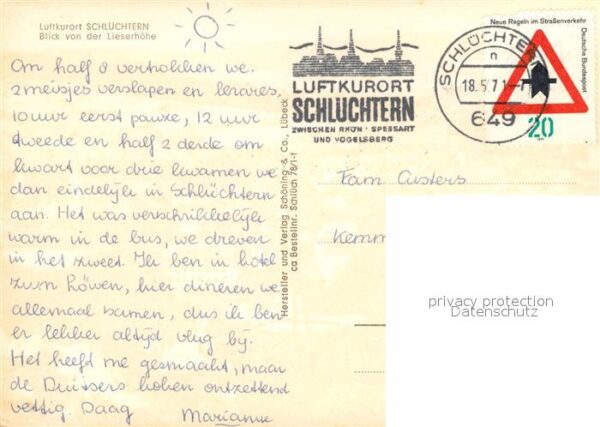 Luftkurort SCHLÜCHTERN
Blick von der Lieserhöhe
Om half 8 vertrokken we.
2 meisjes verslapen en lerares,
10 uur eerst pauze, 12 uur
tweede en half 2 derde om
kwart voor drie kwamen we
dan eindelijk in Schlüchtern
aan. Het was verschrikkelijk
warm in de bus, we dreven
in het zweet. Ik ben in hotel
zum Löwen, hier dineren we
allemaal samen, dus ik ben
er lekker altijd vlug bij.
Het heeft me gesmaakt, maar
de Duitsers koken ontzettend
vettig Daag
Marianne
Hersteller und Verlag Schöning & Co., Lübeck
ca Bestellnr. Schlüch 76/1-f
LUFTKURORT
SCHLÜCHTERN
ZWISCHEN RHÖN · SPESSART
UND VOGELSBERG
SCHLÜCHTERN
n
18.5.71-7
649
Neue Regeln im Straßenverkehr
Deutsche Bundespost
20
Fam. Custers
Kemm
privacy protection
Datenschutz